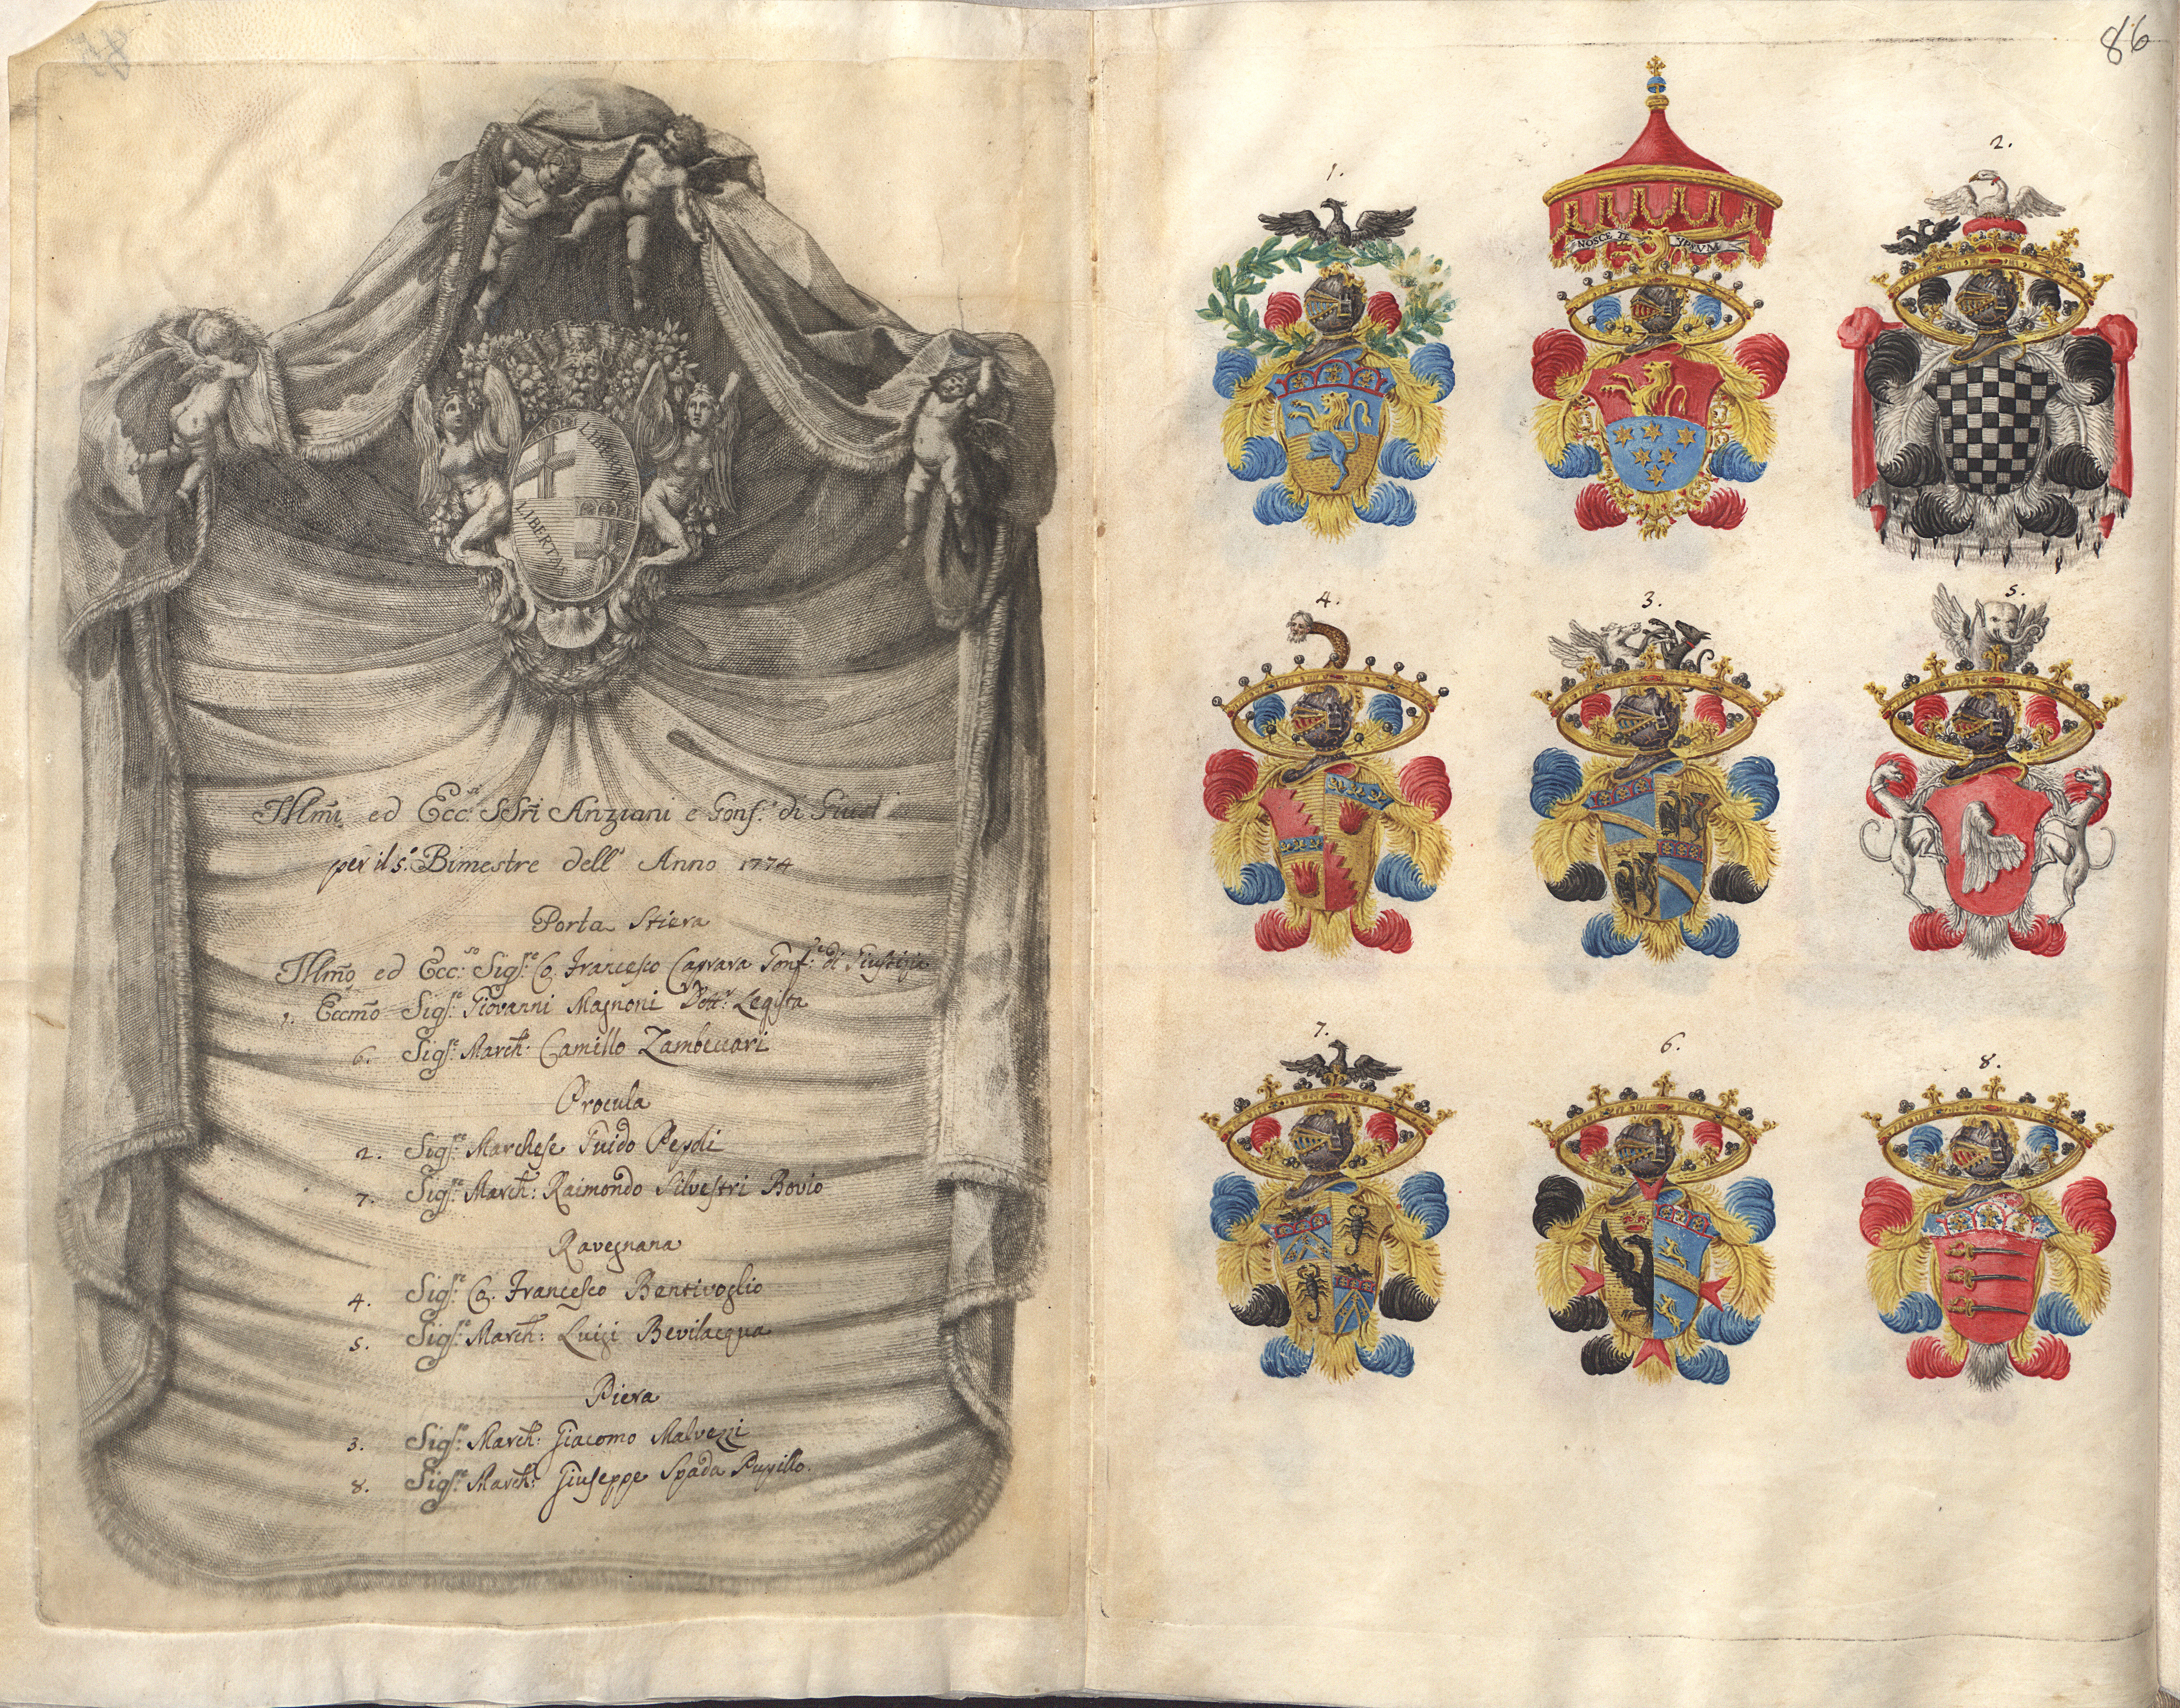 Illmi ed Ecc.si SSri Anziani e Gonf.e di Giust
per il 5.o Bimestre dell' Anno 1774
Porta Stiera
Illmo ed Ecc.so Sig.re Co. Francesco Caprara Gonf.re di Giustizia
1. Eccmo Sig.re Giovanni Magnoni Dott.r Legista
6. Sig.re March: Camillo Zambeccari
Procula
2. Sig.re Marchese Guido Pepoli
7. Sig.re March: Raimondo Silvestri Bovio
Ravegnana
4. Sig.re Co. Francesco Bentivoglio
5. Sig.re March: Luigi Bevilacqua
Piera
3. Sig.re March: Giacomo Malvezzi
8. Sig.re March: Giuseppe Spada Pupillo.
LIBERTAS
LIBERTAS
86
1.
NOSCE TE YPSVM
2.
4.
3.
5.
7.
6.
8.